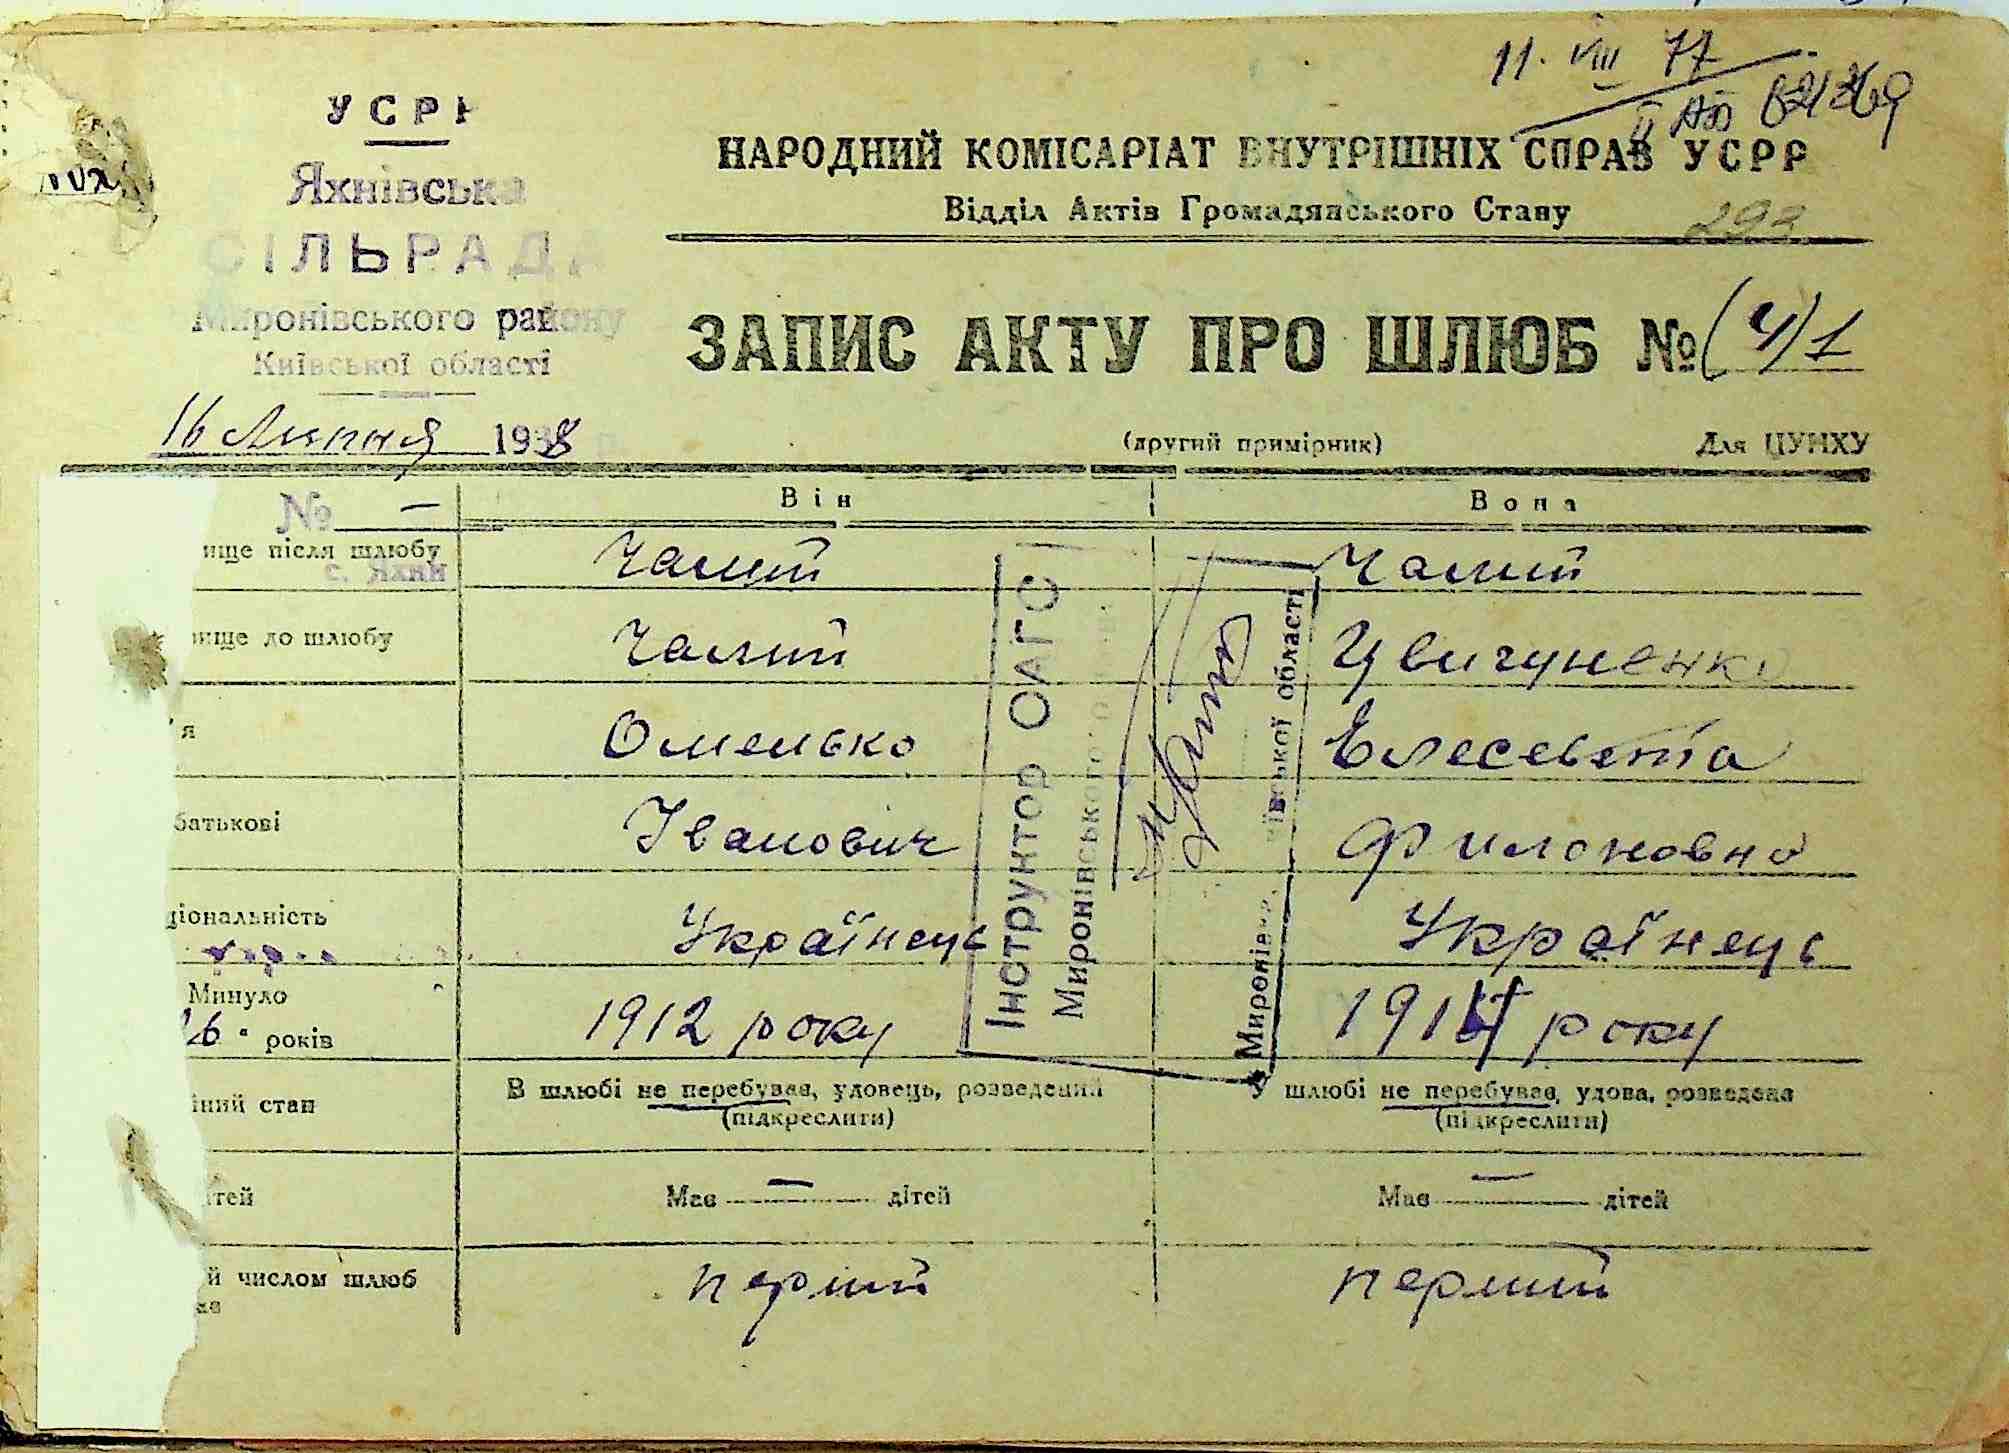 11. VIII 77
II АЮ 621369
УСРР
Яхнівська
СІЛЬРАДА
Миронівського району
Київської області
НАРОДНИЙ КОМІСАРІАТ ВНУТРІШНІХ СПРАВ УСРР
Відділ Актів Громадянського Стану
293
ЗАПИС АКТУ ПРО ШЛЮБ № (4) 1
16 Липня 1938 р.
(другий примірник) Для ЦУНХУ
№ —
Він Вона
ище після шлюбу Чалий Чалий
с. Яхни
вище до шлюбу Чалий Цвигуненко
'я Омелько Елесевета
батькові Іванович Филоновна
ціональність Українець Українець
Минуло
26 років 1912 року 1914 року
Інструктор ОАГС
Миронівського
Миронівка, Київської області
йний стан В шлюбі не перебував, удовець, розведений В шлюбі не перебував, удова, розведена
(підкреслити) (підкреслити)
ітей Має — дітей Має — дітей
й числом шлюб перший перший